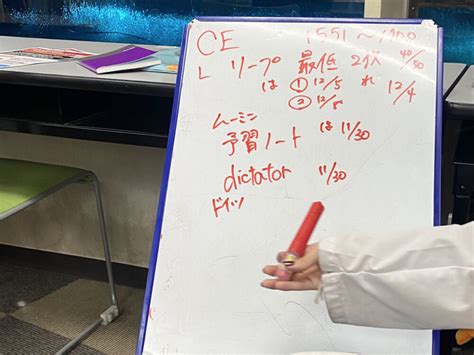 CE 1551〜1900
L リープ 最低 2伏 40/50
は ① 12/5 れ 12/4
② 12/8
ムーミン
予習ノート は 11/30
dictator 11/30
ドイツ